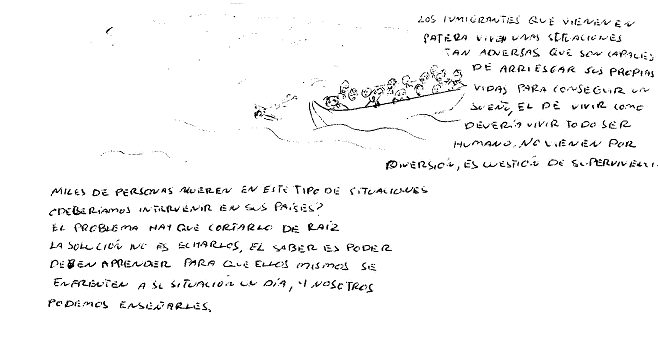 LOS INMIGRANTES QUE VIENEN EN
PATERA VIVEN UNAS SITUACIONES
TAN ADVERSAS QUE SON CAPACES
DE ARRIESGAR SUS PROPIAS
VIDAS PARA CONSEGUIR UN
SUEÑO, EL DE VIVIR COMO
DEVERÍA VIVIR TODO SER
HUMANO. NO VIENEN POR
DIVERSIÓN, ES CUESTIÓN DE
MILES DE PERSONAS MUEREN EN ESTE TIPO DE SITUACIONES
¿DEBERÍAMOS INTERVENIR EN SUS PAÍSES?
EL PROBLEMA HAY QUE CORTARLO DE RAÍZ
LA SOLUCIÓN NO ES ECHARLOS, EL SABER ES PODER
DEBEN APRENDER PARA QUE ELLOS MISMOS SE
ENFRENTEN A SU SITUACIÓN UN DÍA, Y NOSOTROS
PODEMOS ENSEÑARLES.